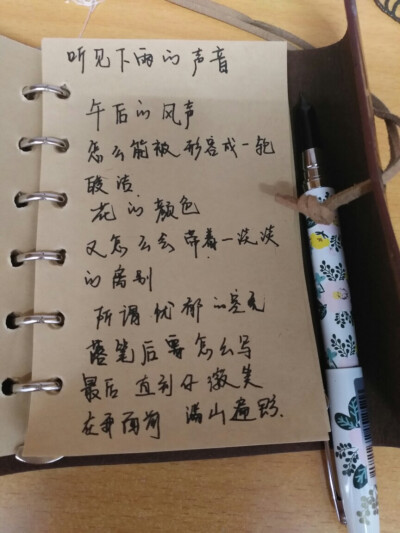 听见下雨的声音
午后的风声
怎么能被形容成一
酸
花的颜色
又怎么会带着一淡淡
的离别
所谓忧郁的
落笔后要怎么写
最后直到你微笑
在我面前 满山遍野.